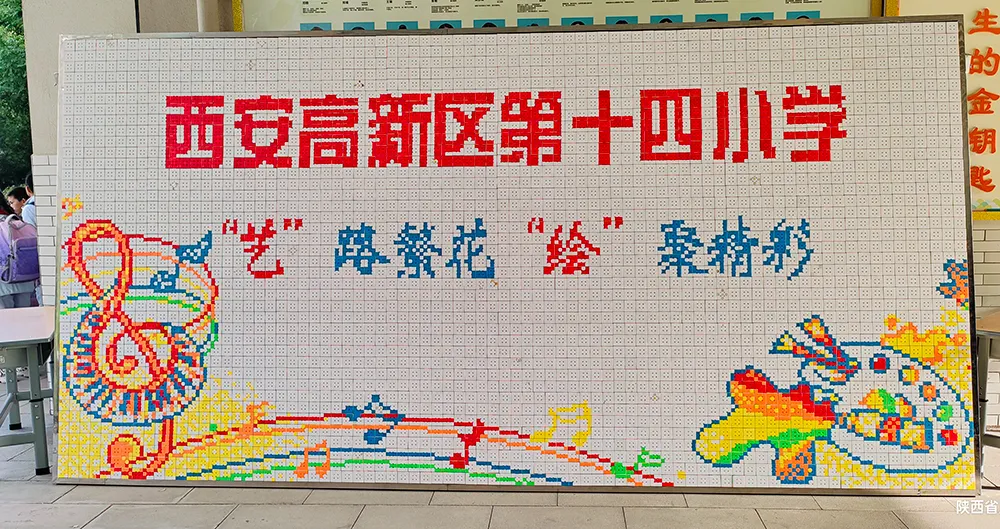 西安高新区第十四小学
“艺”路繁花“绘”聚精彩
生的金钥匙
陕西省